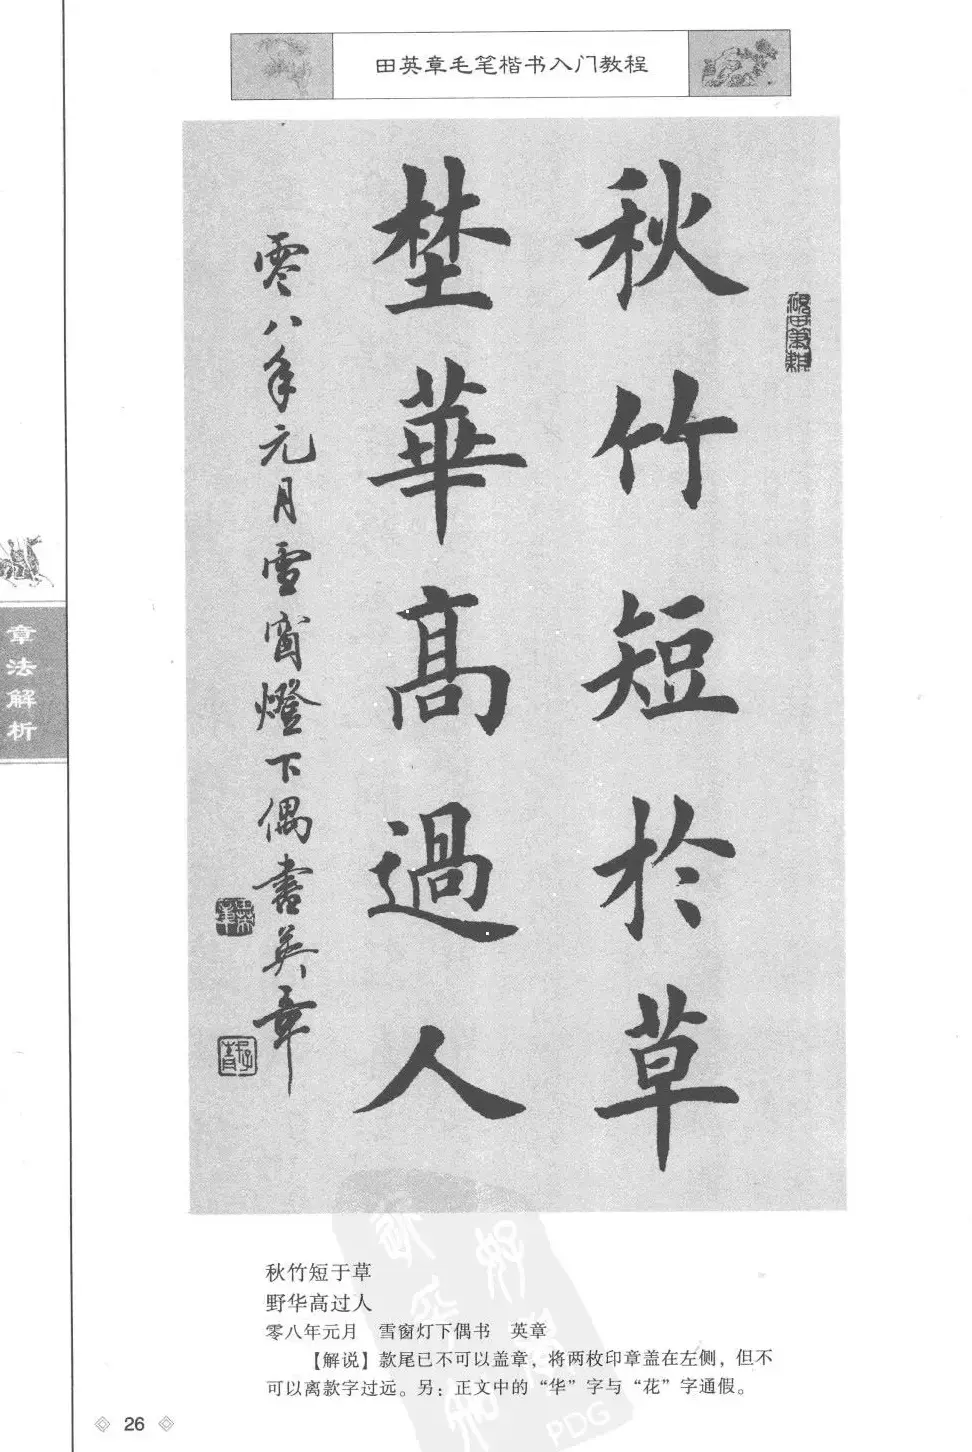 田英章毛笔楷书入门教程
秋竹短於草
埜華高過人
零八年元月雪窗燈下偶書英章
章法解析
秋竹短于草
野华高过人
零八年元月　雪窗灯下偶书　英章
【解说】款尾已不可以盖章，将两枚印章盖在左侧，但不
可以离款字过远。另：正文中的“华”字与“花”字通假。
26
PDG